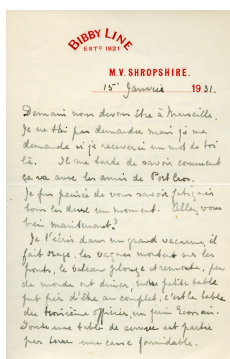 BIBBY LINE
ESTD 1821
M.V. SHROPSHIRE.
15 Janvier 1931.
Demain nous devons être à Marseille.
Je ne t'ai pas demandé mais je me
demande si je recevrai un mot de toi
là. Il me tarde de savoir comment
ça va avec les amis de Port
Je fus peinée de vous savoir fatigués
tous les deux un moment. Allez vous
bien maintenant?
Je t'écris dans un grand vacarme, il
fait orage, les vagues montent sur les
ponts, le bateau plonge et remonte, peu
de monde ont dîner, notre petite table
fut fière d'être au complet, c'est la table
du troisième officier, un Ecossais.
Toute une table de service est partie
par terre une casse formidable.